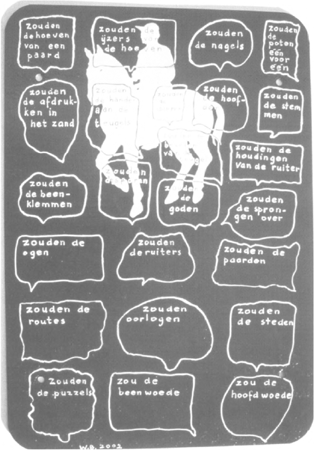 zouden
de hoeven
van een
paard
zouden
ijzers
de hoe
zouden
de nagels
zouden
de
poten
een
voor
een
zouden
de afdruk-
ken in
het zand
zouden
de hoef-
zouden
de stem
men
zouden de
houdingen
van de ruiter
zouden
de been-
klemmen
zouden
goden
zouden
de spron-
gen over
zouden de
ogen
zouden
de ruiters
zouden de
paarden
zouden de
routes
zouden
oorlogen
zouden
de steden
zouden
de puzzels
zou de
beenwoede
zou de
hoofdwoede
W.B. 2002